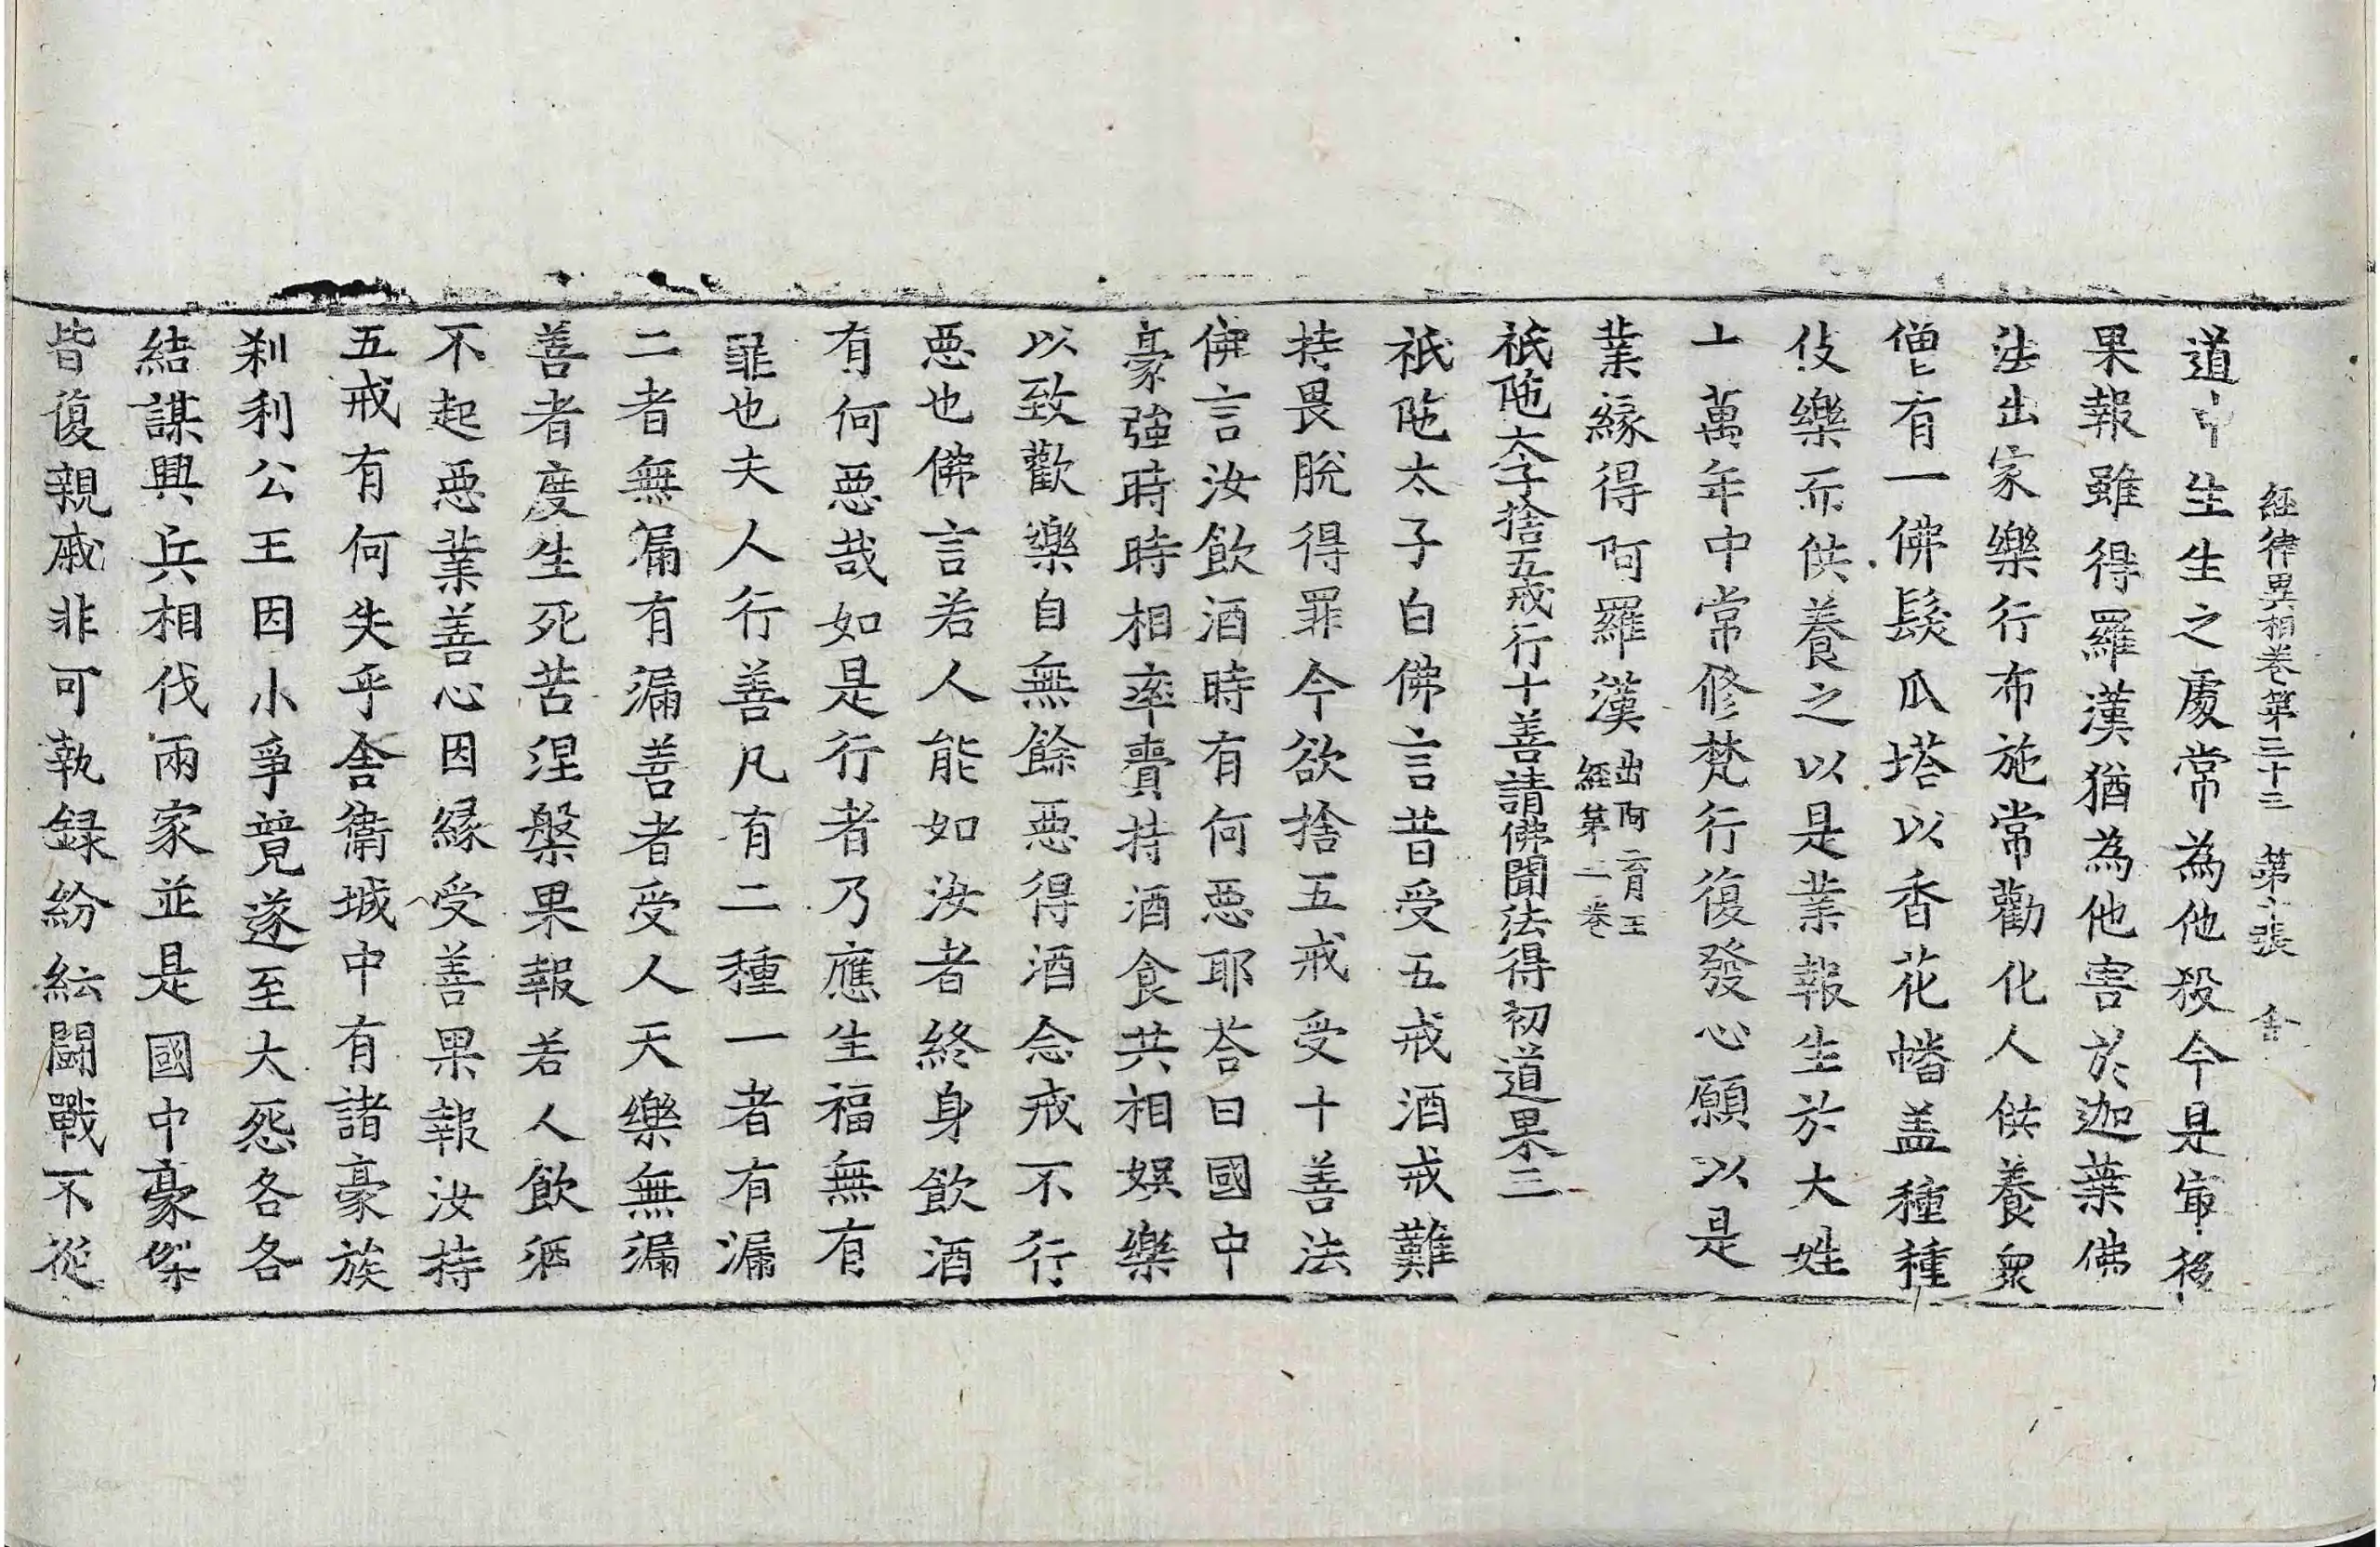 經律異相卷第三十三 第六張 舍
道中生生之處常為他殺今是㝡後
果報雖得羅漢猶為他害於迦葉佛
法出家樂行布施常勸化人供養衆
僧有一佛髮爪塔以香花幡盖種種
伎樂而供養之以是業報生於大姓
十萬年中常修梵行復發心願以是
業緣得阿羅漢出阿育王
經第二卷
祇陁太子捨五戒行十善請佛聞法得初道果三
祇陁太子白佛言昔受五戒酒戒難
持畏脫得罪今欲捨五戒受十善法
佛言汝飲酒時有何惡耶荅曰國中
豪強時時相率賷持酒食共相娛樂
以致歡樂自無餘惡得酒念戒不行
惡也佛言若人能如汝者終身飲酒
有何惡哉如是行者乃應生福無有
罪也夫人行善凡有二種一者有漏
二者無漏有漏善者受人天樂無漏
善者度生死苦涅槃果報若人飲酒
不起惡業善心因緣受善果報汝持
五戒有何失乎舍衛城中有諸豪族
剎利公王因小爭競遂至大怨各各
結謀興兵相伐兩家並是國中豪傑
皆復親戚非可執録紛紜鬪戰不從